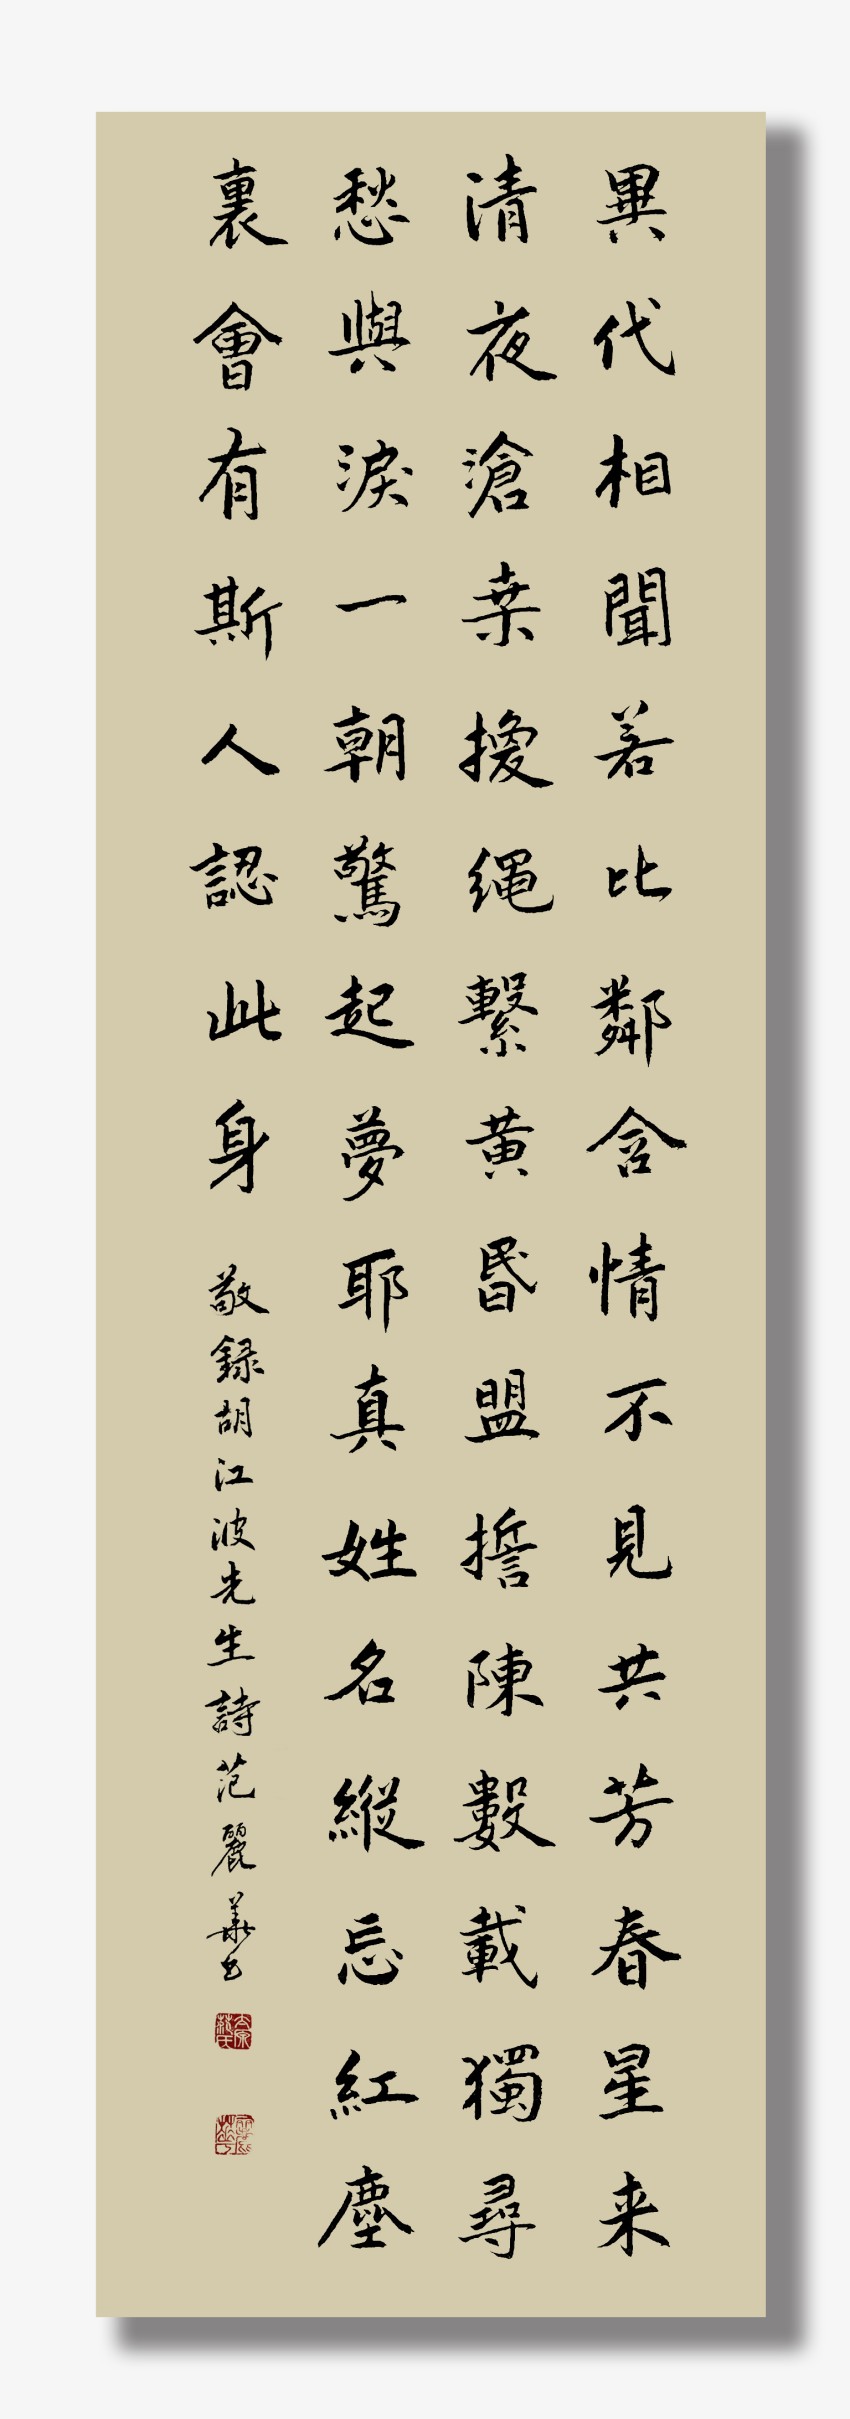 異代相聞若比鄰含情不見共芳春星来
清夜滄桒擾繩繫黃昏盟誓陳數載獨尋
愁與淚一朝驚起夢耶真姓名縱忘紅塵
裏會有斯人認此身
敬録胡江波先生詩范麗華书